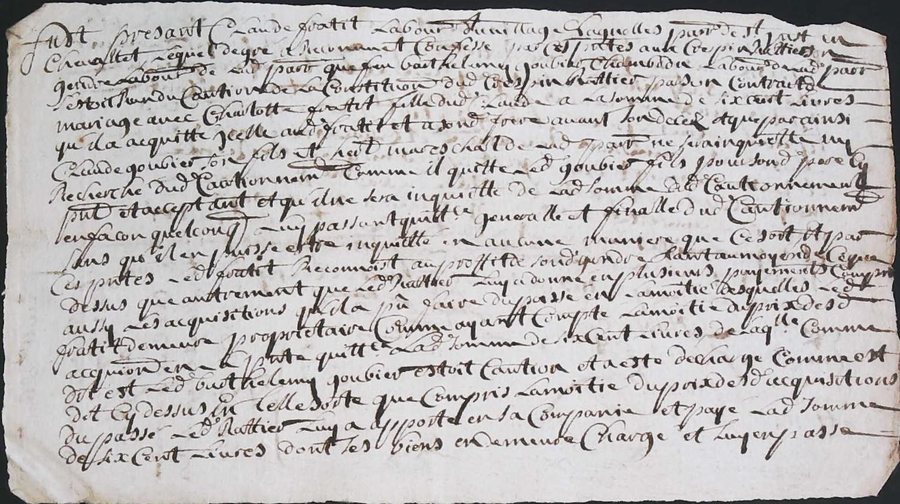 fust presant Claude fratit Labour du village
Chevallet lequel de gre a Confesse par ces pntes aux Crespin Rattier son
gendre Labour de lad parr que feu barthelemy goubier
estoit Caution de la Constitution dud Crespin Rattier par son Contract de
mariage avec Charlotte fratit fille dud Claude a la somme de six cent livres
qu'il a acquitte Icelle aud fratit et a avant son deces et que par ainsi
Claude goubier son fils et mareschal de lad parr ne sera inquiette ny
Recherche dud Cautionnement Comme il quitte led goubier fils pour sond pere Icy
pnt et acceptant et qu'il ne sera inquiette de lad somme Cautionnement
en facon quelconq luy passant quitte generalle et finalle dud Cautionnem
sans qu'il en puisse estre inquiette en aucune maniere que ce soit et par
ces pntes led fratit Reconnoist au proffit de sond gendre
dessus que autrement que led Rattier luy a donne en plusieurs payements Compris
aussy les acquisitions qu'il a pu faire du passe en la moitie desquelles led
fratit demeure proprietaire Comme ayant Compte la moitie du prix desd
acquion en la pnte quitte lad somme de six cent livres de laqlle Comme
dit est led barthelemy goubier estoit Caution et a este decharge Comme est
dit Cy dessus En telle sorte que Compris la moitie du prix desd acquisitions
du passe led Rattier luy a apporte en sa Companie et paye lad somme
de six Cent livres dont ses biens en demeure Charge et luy en passe